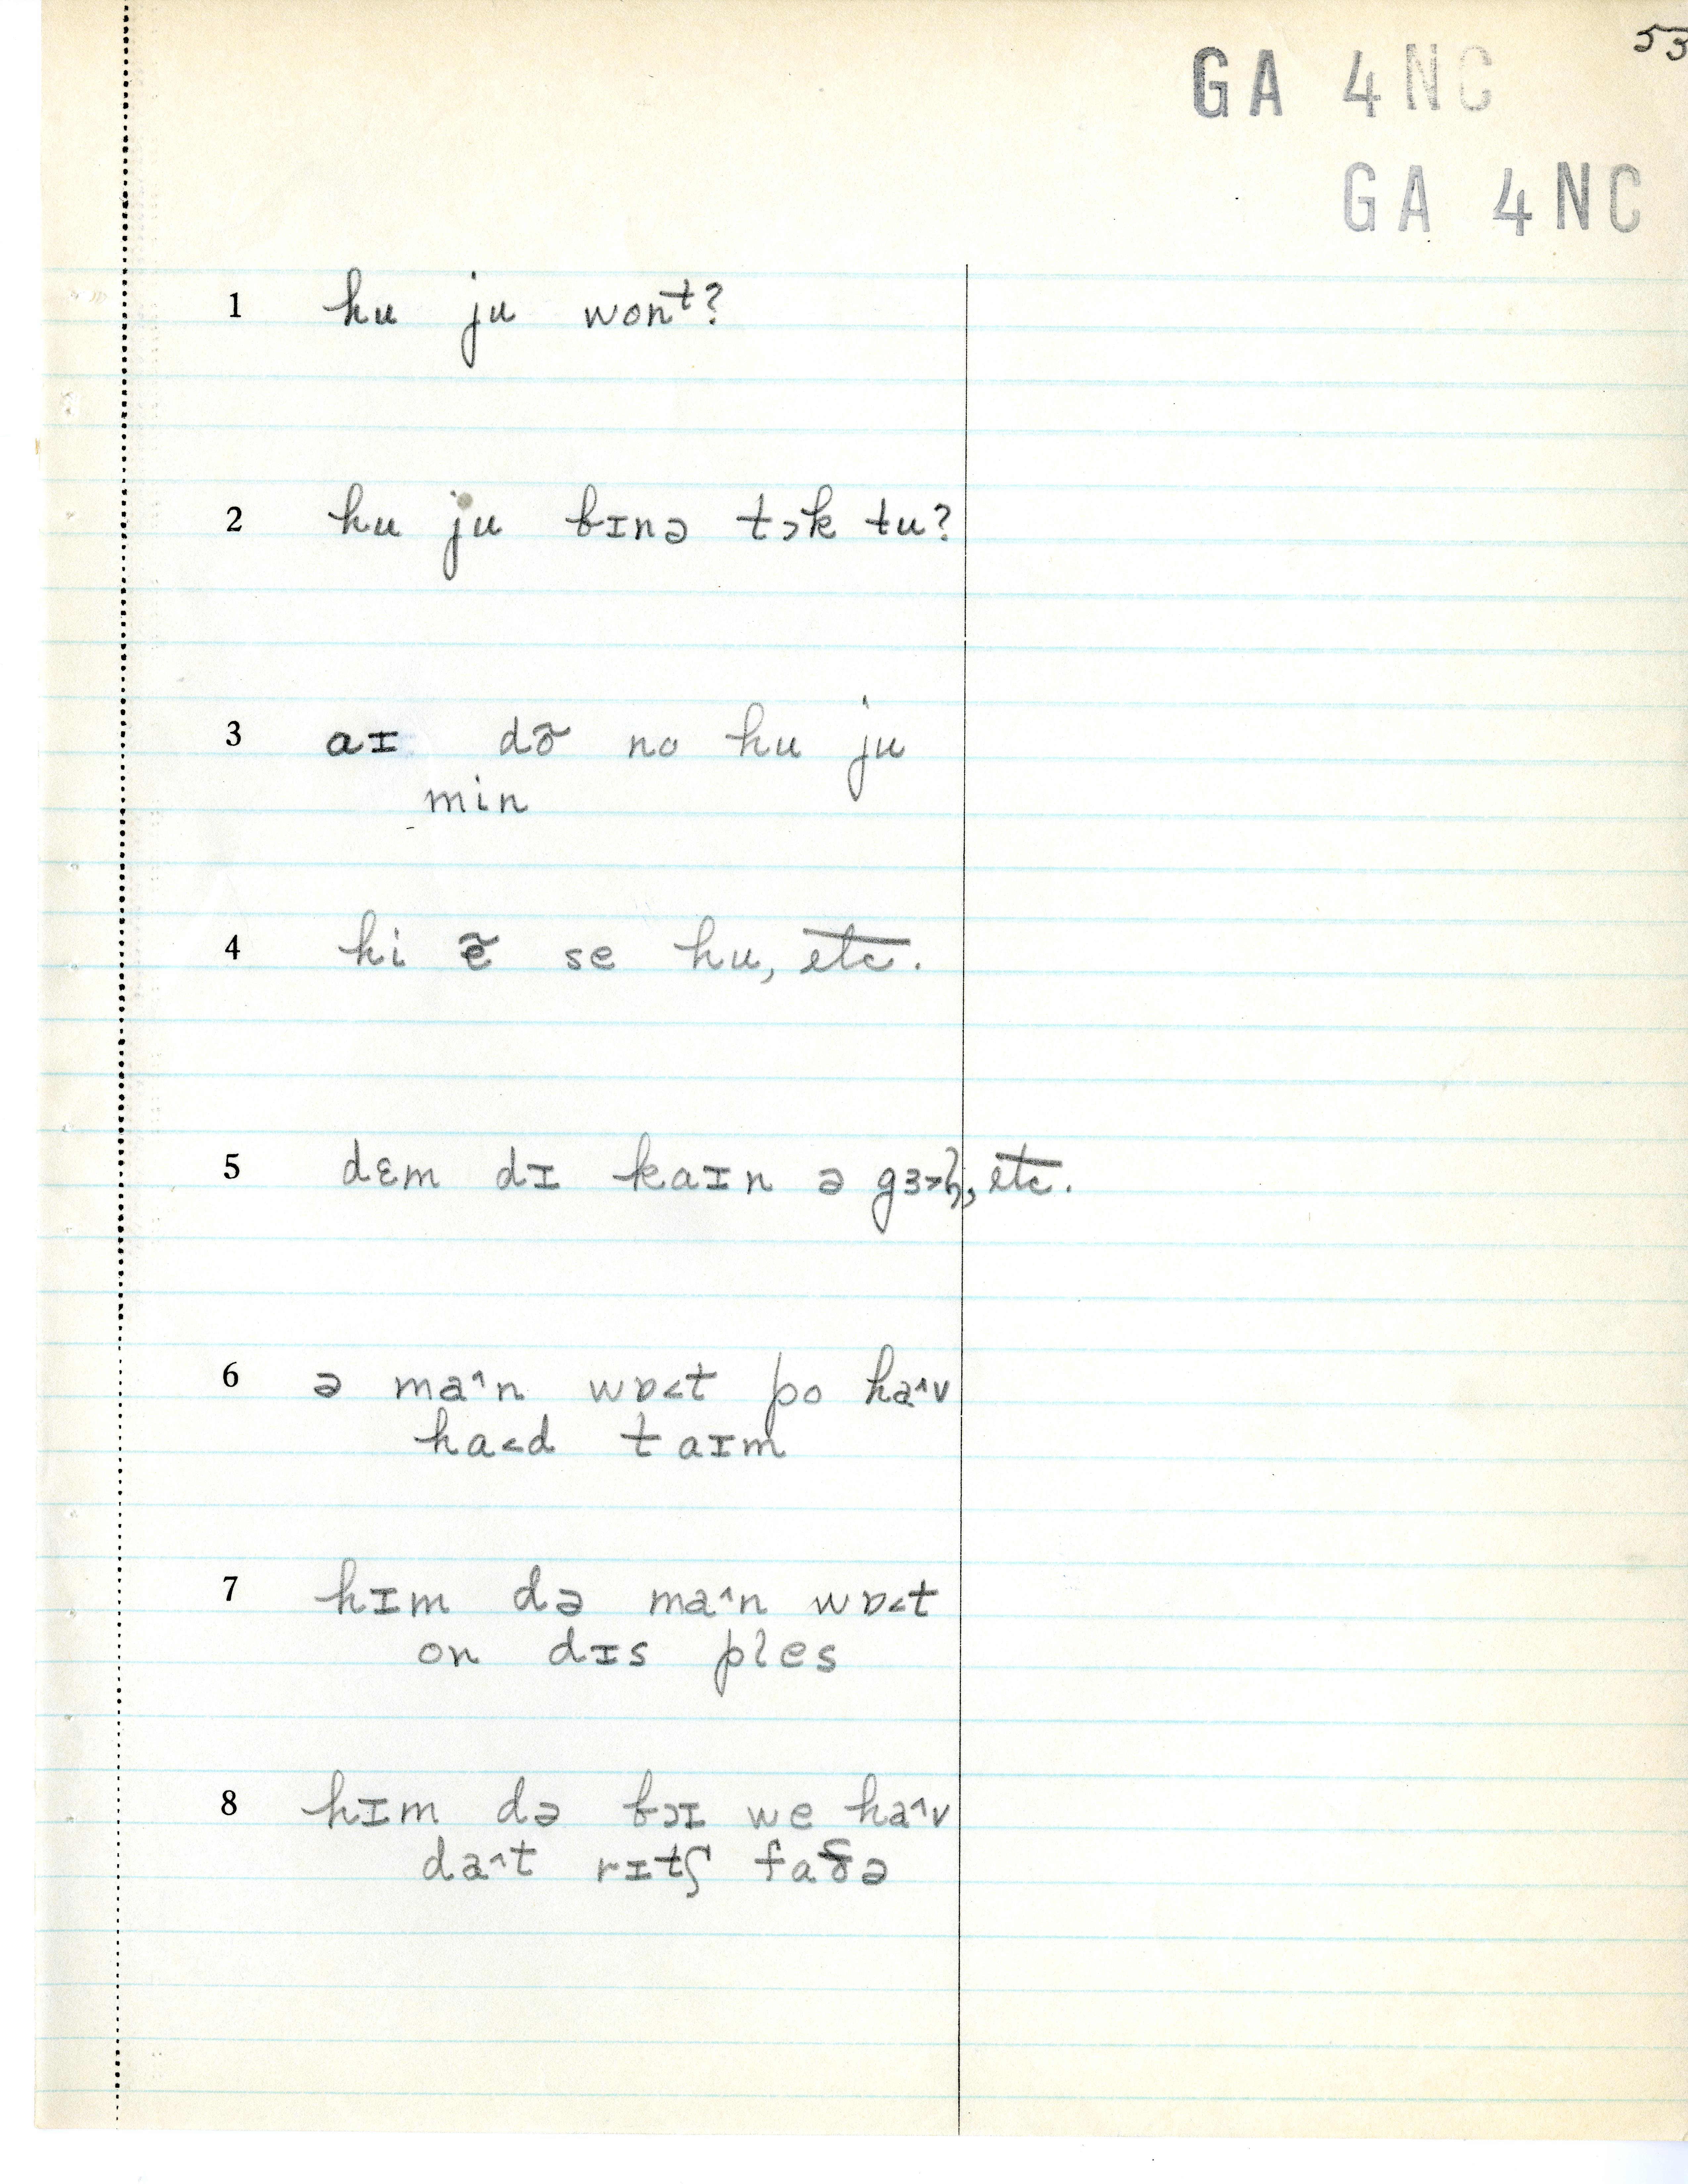 53
GA 4NC
GA 4NC
1 hu ju wont?
2 hu ju bɪnə tɔk tu?
3 aɪ dõ no hu ju
min
4 hi ẽ se hu, etc.
5 dɛm dɪ kaɪn ə etc.
6 ə ma^n wɒ<t po ha^v
ha<d taɪm
7 hɪm də ma^n wɒ<t
on dɪs ples
8 hɪm də bɔɪ we ha^v
da^t rɪtʃ faðə